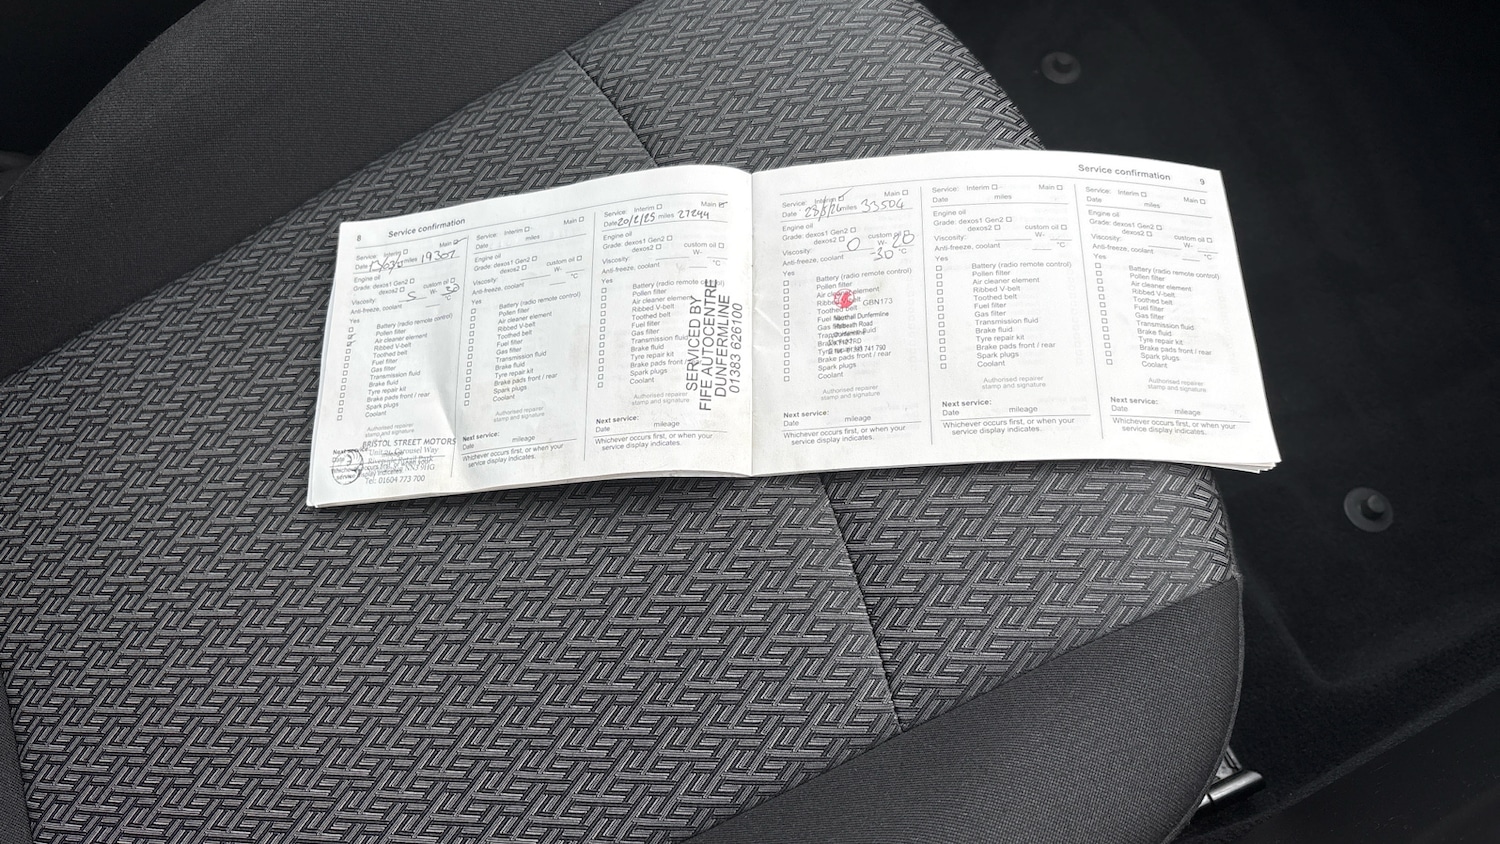 8 Service confirmation
Service: Interim Main
Date miles 19307
Engine oil
Grade: dexos1 Gen2
dexos2 custom oil
Viscosity: 5 W- 30
Anti-freeze, coolant °C
Yes
Battery (radio remote control)
Pollen filter
Air cleaner element
Ribbed V-belt
Toothed belt
Fuel filter
Gas filter
Transmission fluid
Brake fluid
Tyre repair kit
Brake pads front / rear
Spark plugs
Coolant
Authorised repairer
stamp and signature
BRISTOL STREET MOTORS
Carousel Way
Riverside Retail Park
NN3 9HG
Tel: 01604 773 700
Service: Interim Main
Date miles
Engine oil
Grade: dexos1 Gen2
dexos2 custom oil
Viscosity: W-
Anti-freeze, coolant °C
Yes
Battery (radio remote control)
Pollen filter
Air cleaner element
Ribbed V-belt
Toothed belt
Fuel filter
Gas filter
Transmission fluid
Brake fluid
Tyre repair kit
Brake pads front / rear
Spark plugs
Coolant
Authorised repairer
stamp and signature
Next service:
Date mileage
Whichever occurs first, or when your
service display indicates.
Service: Interim Main
Date 20/2/25 miles 27244
Engine oil
Grade: dexos1 Gen2
dexos2 custom oil
Viscosity: W-
Anti-freeze, coolant °C
Yes
Battery (radio remote control)
Pollen filter
Air cleaner element
Ribbed V-belt
Toothed belt
Fuel filter
Gas filter
Transmission fluid
Brake fluid
Tyre repair kit
Brake pads front / rear
Spark plugs
Coolant
SERVICED BY
FIFE AUTOCENTRE
DUNFERMLINE
01383 626100
Authorised repairer
stamp and signature
Next service:
Date mileage
Whichever occurs first, or when your
service display indicates.
Service confirmation 9
Service: Interim Main
Date miles 33504
Engine oil
Grade: dexos1 Gen2
dexos2 custom oil
Viscosity: 0 W- 20
Anti-freeze, coolant -30 °C
Yes
Battery (radio remote control)
Pollen filter
Air cleaner element
Ribbed V-belt
Toothed belt
Fuel filter
Gas filter
Brake fluid
Tyre repair kit
Brake pads front / rear
Spark plugs
Coolant
GBN173
Dunfermline
Road
741 790
Authorised repairer
stamp and signature
Next service:
Date mileage
Whichever occurs first, or when your
service display indicates.
Service: Interim Main
Date miles
Engine oil
Grade: dexos1 Gen2
dexos2 custom oil
Viscosity: W-
Anti-freeze, coolant °C
Yes
Battery (radio remote control)
Pollen filter
Air cleaner element
Ribbed V-belt
Toothed belt
Fuel filter
Gas filter
Transmission fluid
Brake fluid
Tyre repair kit
Brake pads front / rear
Spark plugs
Coolant
Authorised repairer
stamp and signature
Next service:
Date mileage
Whichever occurs first, or when your
service display indicates.
Service: Interim Main
Date miles
Engine oil
Grade: dexos1 Gen2
dexos2 custom oil
Viscosity: W-
Anti-freeze, coolant °C
Yes
Battery (radio remote control)
Pollen filter
Air cleaner element
Ribbed V-belt
Toothed belt
Fuel filter
Gas filter
Transmission fluid
Brake fluid
Tyre repair kit
Brake pads front / rear
Spark plugs
Coolant
Authorised repairer
stamp and signature
Next service:
Date mileage
Whichever occurs first, or when your
service display indicates.